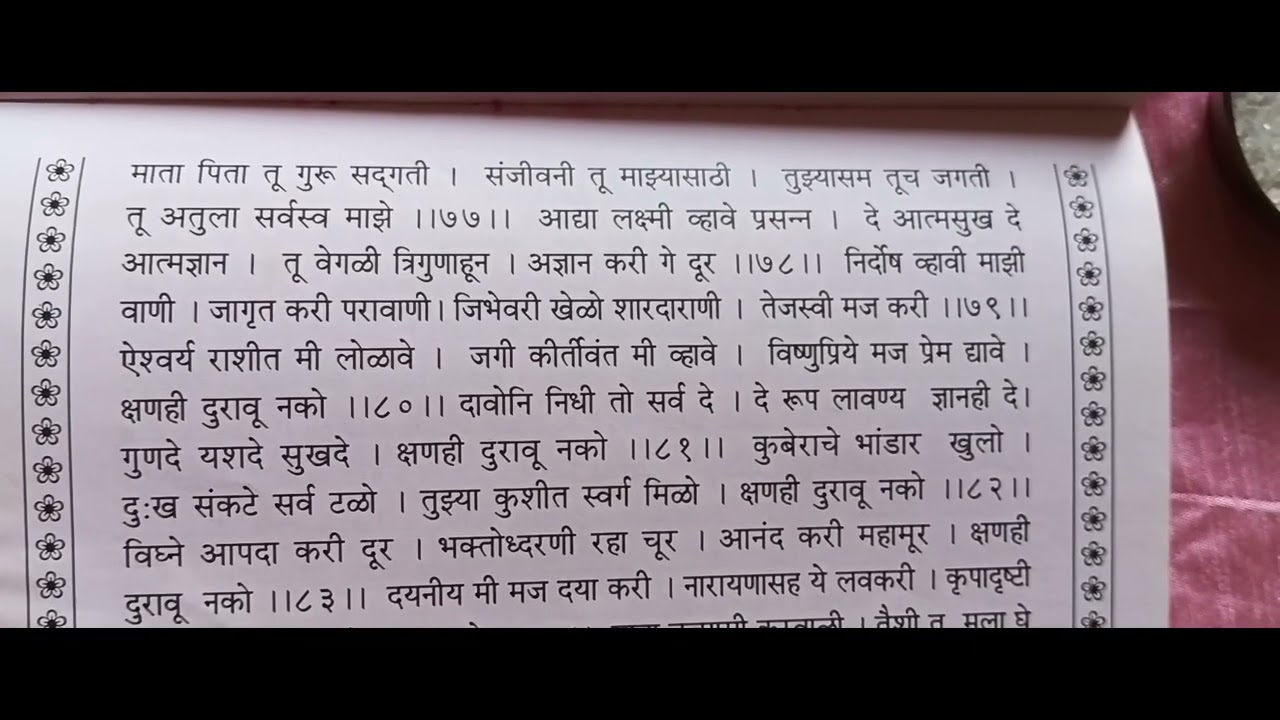 माता पिता तू गुरू सद्‌गती । संजीवनी तू माझ्यासाठी । तुझ्यासम तूच जगती ।
तू अतुला सर्वस्व माझे ।।७७।। आद्या लक्ष्मी व्हावे प्रसन्न । दे आत्मसुख दे
आत्मज्ञान । तू वेगळी त्रिगुणाहून । अज्ञान करी गे दूर ।।७८।। निर्दोष व्हावी माझी
वाणी । जागृत करी परावाणी। जिभेवरी खेळो शारदाराणी । तेजस्वी मज करी ।।७९।।
ऐश्वर्य राशीत मी लोळावे । जगी कीर्तीवंत मी व्हावे । विष्णुप्रिये मज प्रेम द्यावे ।
क्षणही दुरावू नको ।।८०।। दावोनि निधी तो सर्व दे । दे रूप लावण्य ज्ञानही दे।
गुणदे यशदे सुखदे । क्षणही दुरावू नको ।।८१।। कुबेराचे भांडार खुलो ।
दुःख संकटे सर्व टळो । तुझ्या कुशीत स्वर्ग मिळो । क्षणही दुरावू नको ।।८२।।
विघ्ने आपदा करी दूर । भक्तोध्दरणी रहा चूर । आनंद करी महामूर । क्षणही
दुरावू नको ।।८३।। दयनीय मी मज दया करी । नारायणासह ये लवकरी । कृपादृष्टी
। तैशी तू मला घे